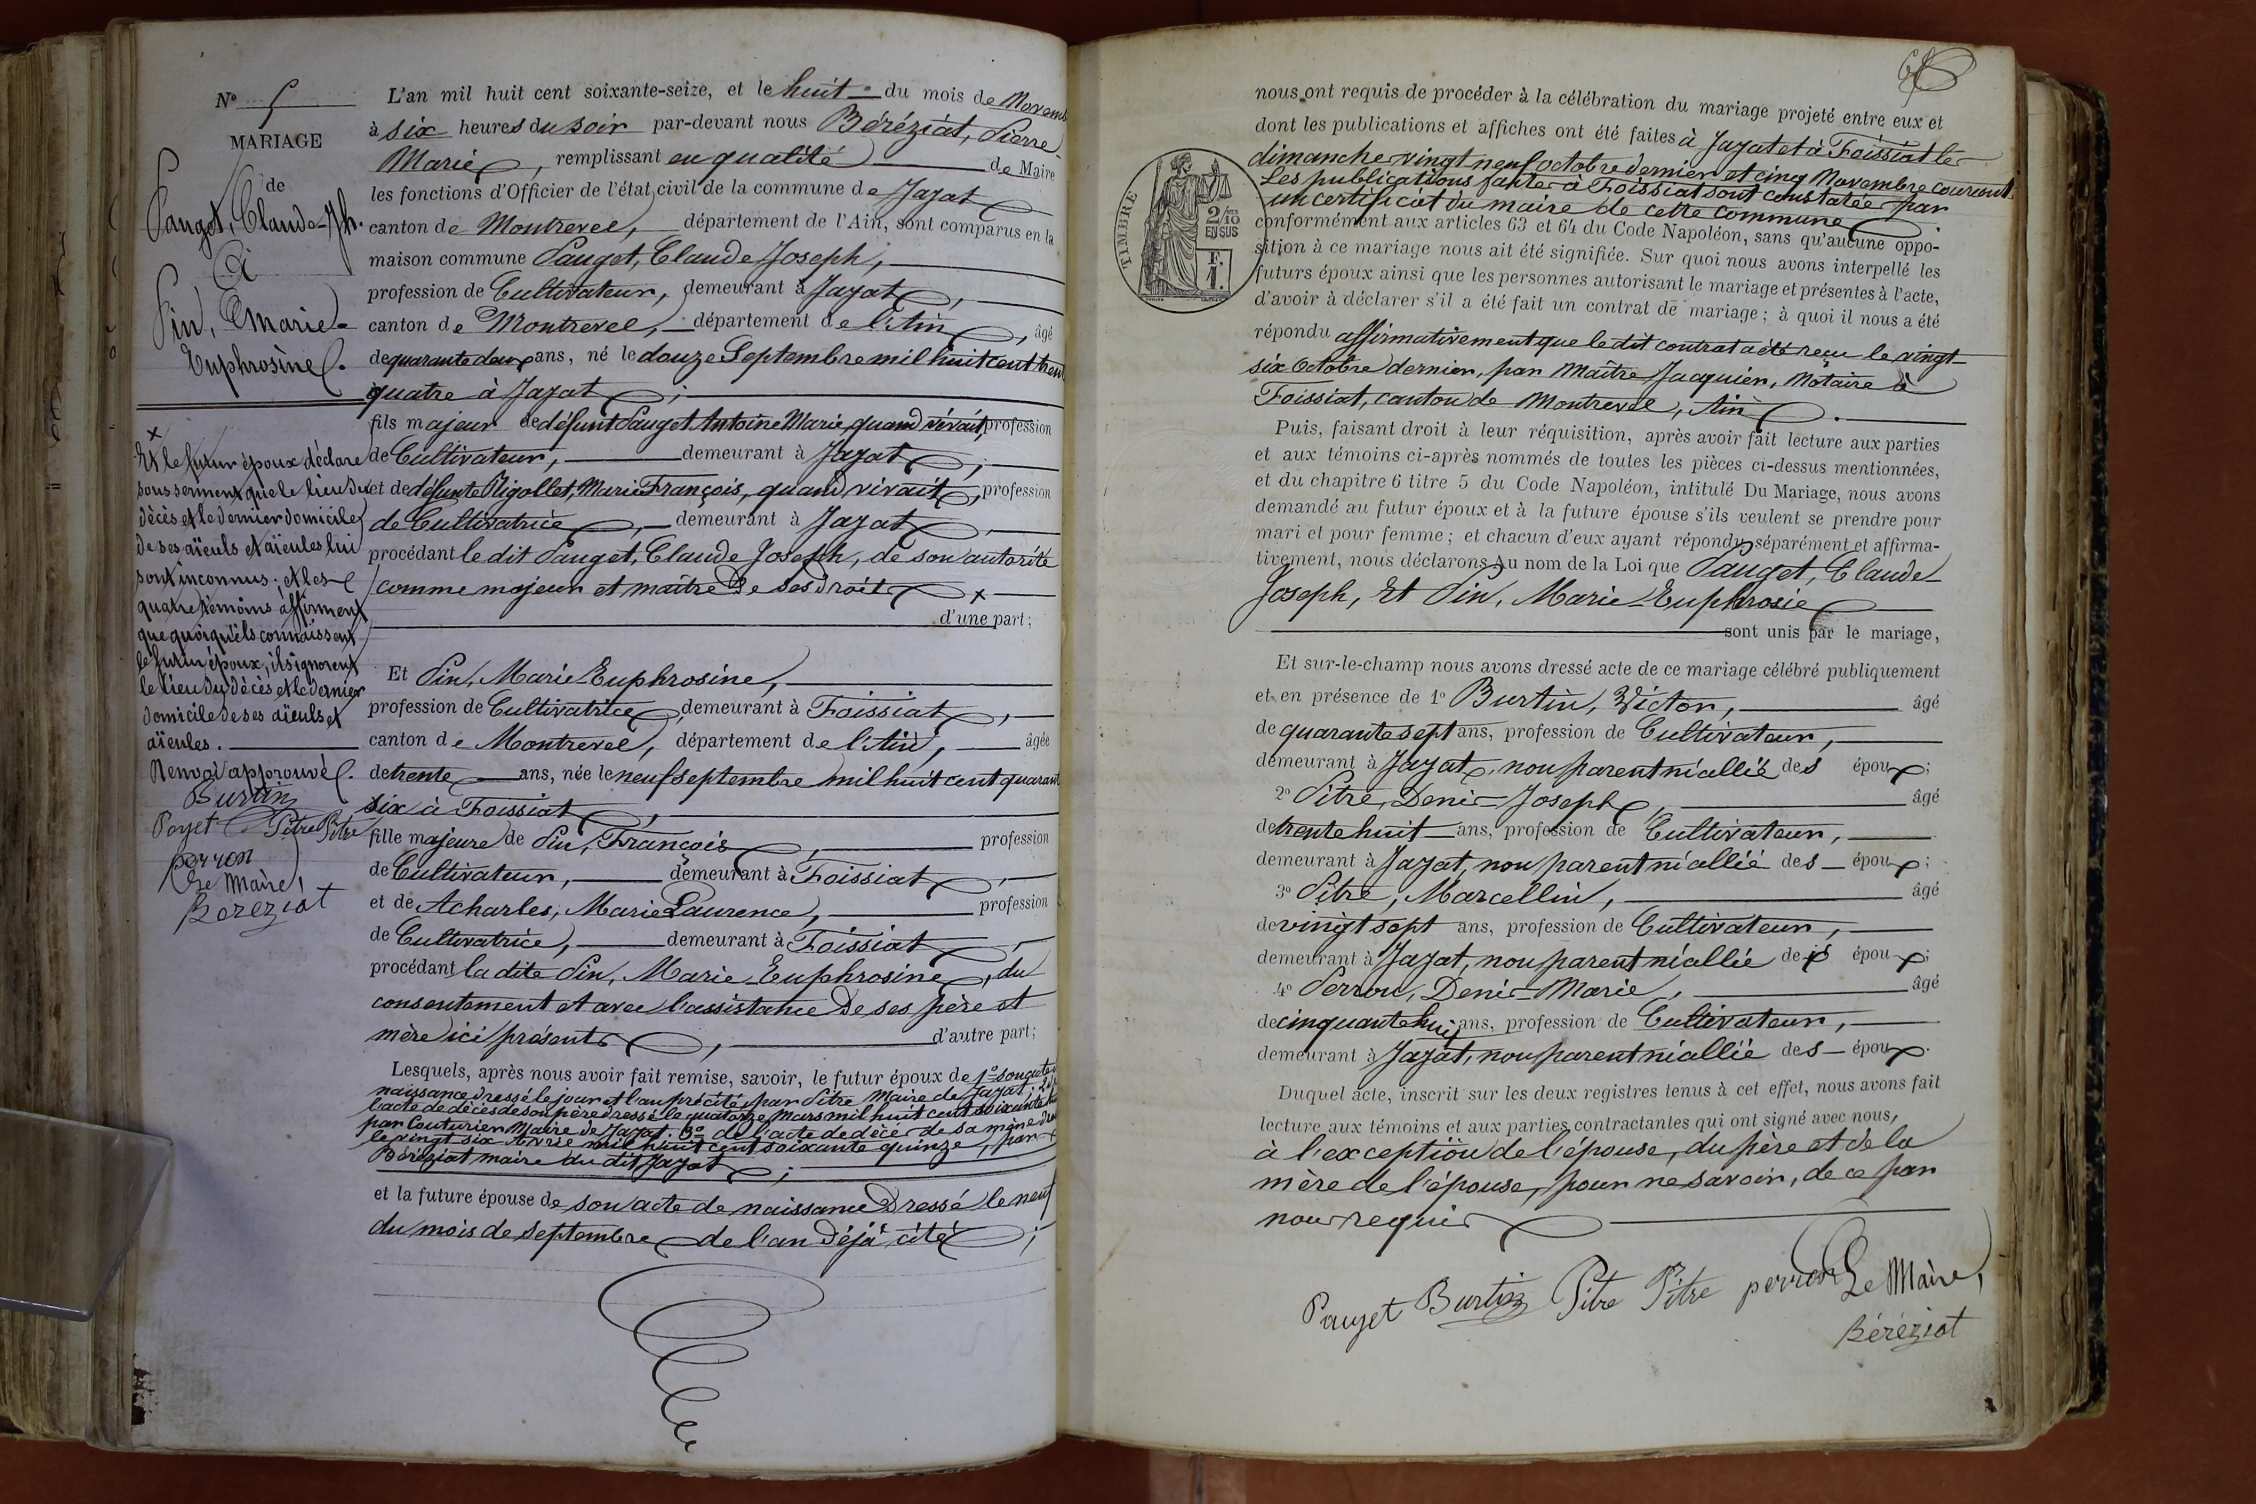 N° 5
MARIAGE
de
Pauget, Claude-Jph.
Et
Pin, Marie-
Euphrosine.
L'an mil huit cent soixante-seize, et le huit du mois de Novemb
à six heures du soir par-devant nous Béréziat, Pierre-
Marie, remplissant en qualité de Maire
les fonctions d'Officier de l'état civil de la commune de Jayat
canton de Montrevel, département de l'Ain, sont comparus en la
maison commune Pauget, Claude Joseph,
profession de Cultivateur, demeurant à Jayat,
canton de Montrevel, département de l'Ain, âgé
de quarante deux ans, né le douze Septembre mil huit cent trent
quatre à Jayat;
fils majeur de défunt Pauget Antoine Marie, quand vivait, profession
de Cultivateur, demeurant à Jayat;
et de défunte Rigollet, Marie François, quand vivait, profession
de Cultivatrice, demeurant à Jayat,
procédant le dit Pauget, Claude Joseph, de son autorité
comme majeur et maître de ses droits x
d'une part;
x
Et le futur époux déclare
sous serment que le lieu du
décès et le dernier domicile
de ses aïeuls et aïeules lui
sont inconnus; et les
quatre témoins affirment
que quoiqu'ils connaissent
le futur époux, ils ignorent
le lieu du décès et le dernier
domicile de ses aïeuls et
aïeules.
Renvoi approuvé.
Burtin
Pauget Pitre Pitre
perron
Le Maire,
Béréziat
Et Pin, Marie Euphrosine,
profession de Cultivatrice, demeurant à Foissiat,
canton de Montrevel, département de l'Ain, âgée
de trente ans, née le neuf septembre mil huit cent quarant
six à Foissiat,
fille majeure de Pin, François, profession
de Cultivateur, demeurant à Foissiat,
et de Acharles, Marie Laurence, profession
de Cultivatrice, demeurant à Foissiat,
procédant la dite Pin, Marie-Euphrosine, du
consentement et avec l'assistance de ses père et
mère ici présents, d'autre part;
Lesquels, après nous avoir fait remise, savoir, le futur époux de 1° son acte d
naissance dressé le jour et l'an précités, par Pitre Maire de Jayat; 2° d
l'acte de décès de son père dressé le quatorze Mars mil huit cent soixante
par Couturier Maire de Jayat. 3° de l'acte de décès de sa mère
le vingt six Avril mil huit cent soixante quinze, par
Béréziat maire du dit Jayat;
et la future épouse de son acte de naissance Dressé le neuf
du mois de septembre de l'an déjà cité;
nous ont requis de procéder à la célébration du mariage projeté entre eux et
dont les publications et affiches ont été faites à Jayat et à Foissiat le
dimanche vingt neuf octobre dernier et cinq Novembre courant.
Les publications faites à Foissiat sont constatées par
un certificat du maire de cette commune.
conformément aux articles 63 et 64 du Code Napoléon, sans qu'aucune oppo-
sition à ce mariage nous ait été signifiée. Sur quoi nous avons interpellé les
futurs époux ainsi que les personnes autorisant le mariage et présentes à l'acte,
d'avoir à déclarer s'il a été fait un contrat de mariage; à quoi il nous a été
répondu affirmativement que le dit contrat a été reçu le vingt
six Octobre dernier, par Maître Jacquier, Notaire à
Foissiat, canton de Montrevel, Ain.
TIMBRE
2/10
EN SUS
F.
1.
Puis, faisant droit à leur réquisition, après avoir fait lecture aux parties
et aux témoins ci-après nommés de toutes les pièces ci-dessus mentionnées,
et du chapitre 6 titre 5 du Code Napoléon, intitulé Du Mariage, nous avons
demandé au futur époux et à la future épouse s'ils veulent se prendre pour
mari et pour femme; et chacun d'eux ayant répondu séparément et affirma-
tivement, nous déclarons Au nom de la Loi que Pauget, Claude
Joseph, Et Pin, Marie-Euphrosie
sont unis par le mariage,
Et sur-le-champ nous avons dressé acte de ce mariage célébré publiquement
et en présence de 1° Burtin, Victor, âgé
de quarante sept ans, profession de Cultivateur,
demeurant à Jayat, non parent ni allié des époux;
2° Pitre, Denis-Joseph, âgé
de trente huit ans, profession de Cultivateur,
demeurant à Jayat, non parent ni allié des époux;
3° Pitre, Marcellin, âgé
de vingt sept ans, profession de Cultivateur,
demeurant à Jayat, non parent ni allié des époux;
4° Perron, Denis-Marie, âgé
de cinquante huit ans, profession de Cultivateur,
demeurant à Jayat, non parent ni allié des époux.
Duquel acte, inscrit sur les deux registres tenus à cet effet, nous avons fait
lecture aux témoins et aux parties contractantes qui ont signé avec nous,
à l'exception de l'épouse, du père et de la
mère de l'épouse, pour ne savoir, de ce par
nous requis
Pauget Burtin Pitre Pitre perron Le Maire,
Béréziat